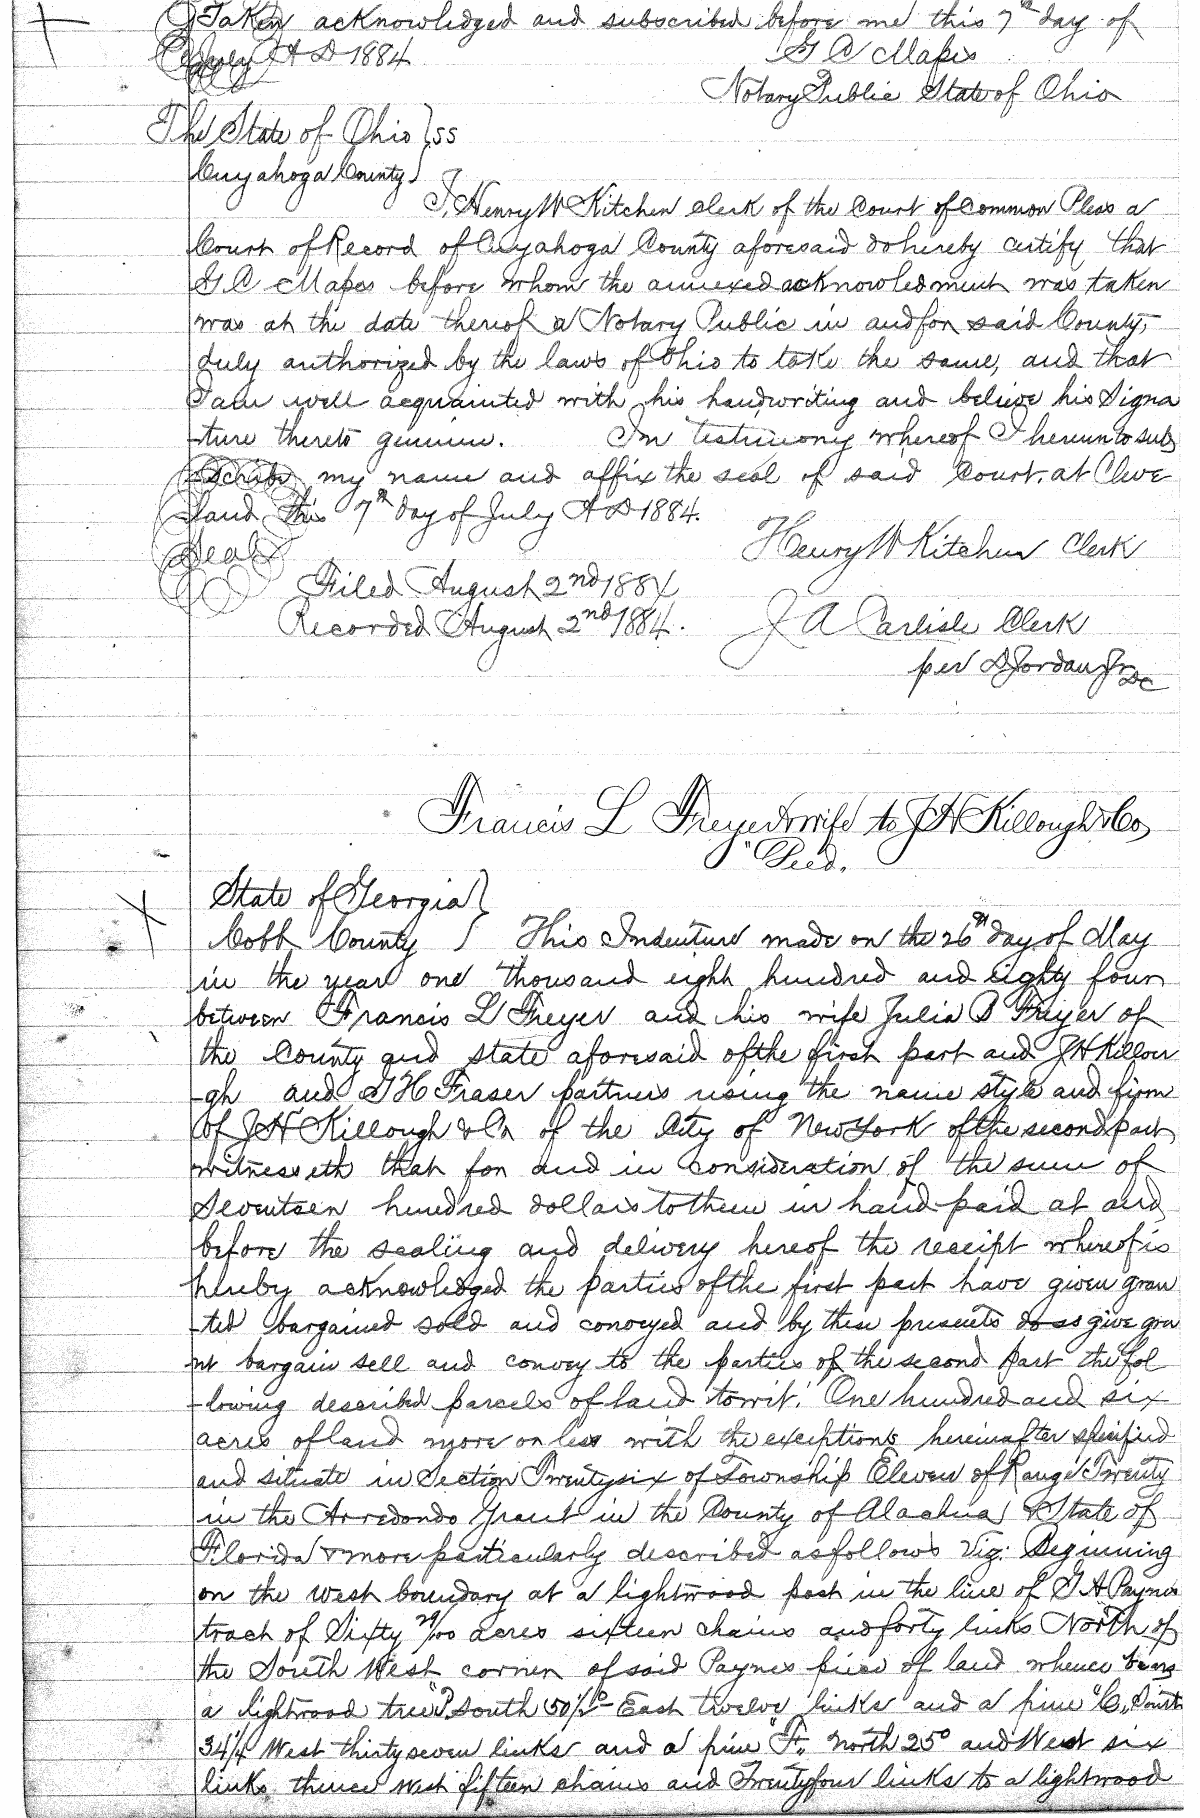 Taken acknowledged and subscribed before me this 7th day of
July A D 1884 G C Mapes
Notary Public State of Ohio
The State of Ohio } ss
Cuyahoga County }
I, Henry W Kitchen Clerk of the Court of Common Pleas a
Court of Record of Cuyahoga County aforesaid do hereby certify that
G C Mapes before whom the annexed acknowledment was taken
was at the date thereof a Notary Public in and for said County,
duly authorized by the laws of Ohio to take the same, and that
I am well acquainted with his handwriting and believe his Signa
-ture thereto genuine. In testimony whereof I hereunto sub
-scribe my name and affix the seal of said Court, at Cleve
-land this 7th day of July A D 1884.
Seal Henry W Kitchen Clerk
Filed August 2nd 1884
Recorded August 2nd 1884. J A Carlisle Clerk
per D Jordan Jr DC
Francis L Freyer & wife to J H Killough & Co
"Deed.
State of Georgia }
Cobb County } This Indenture made on the 26th day of May
in the year one thousand eight hundred and eighty four
between Francis L Freyer and his wife Julia B Freyer of
the County and state aforesaid of the first part and J H Killou
-gh and T H Fraser partners using the name style and firm
of J H Killough & Co of the City of New York of the second part
witnesseth that for and in consideration of the sum of
Seventeen hundred dollars to them in hand paid at and
before the sealing and delivery hereof the receipt whereof is
hereby acknowledged the parties of the first part have given gran
-ted bargained sold and conveyed and by these presents do give gra
nt bargain sell and convey to the parties of the second part the fol
-lowing described parcels of land towit: One hundred and six
acres of land more or less with the exceptions hereinafter specified
and situate in Section Twenty six of Township Eleven of Range Twenty
in the Arredondo Grant in the County of Alachua & State of
Florida & more particularly described as follows Viz: Beginning
on the west boundary at a lightwood post in the line of G A Paynes
tract of Sixty 29/100 acres sixteen chains and forty links North of
the South West corner of said Paynes piece of land whence bears
a lightwood tree "P" South 50 1/2° East twelve links and a pine "C" South
34 1/4 West thirty seven links and a pine "F" North 25° and West six
links thence west fifteen chains and Twenty four links to a lightwood